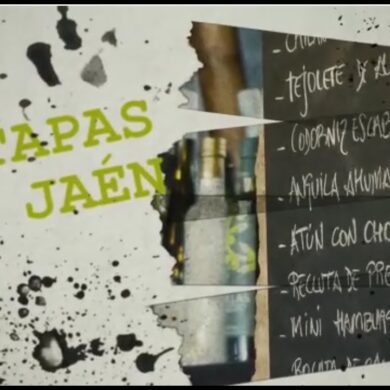 TAPAS
JAÉN
- TEJOLETE DE
- CODORNIZ ESCAB
- ANGUILA AHUMA
- ATÚN CON CHO
- RECUTA DE PRE
- MINI HAMBURG